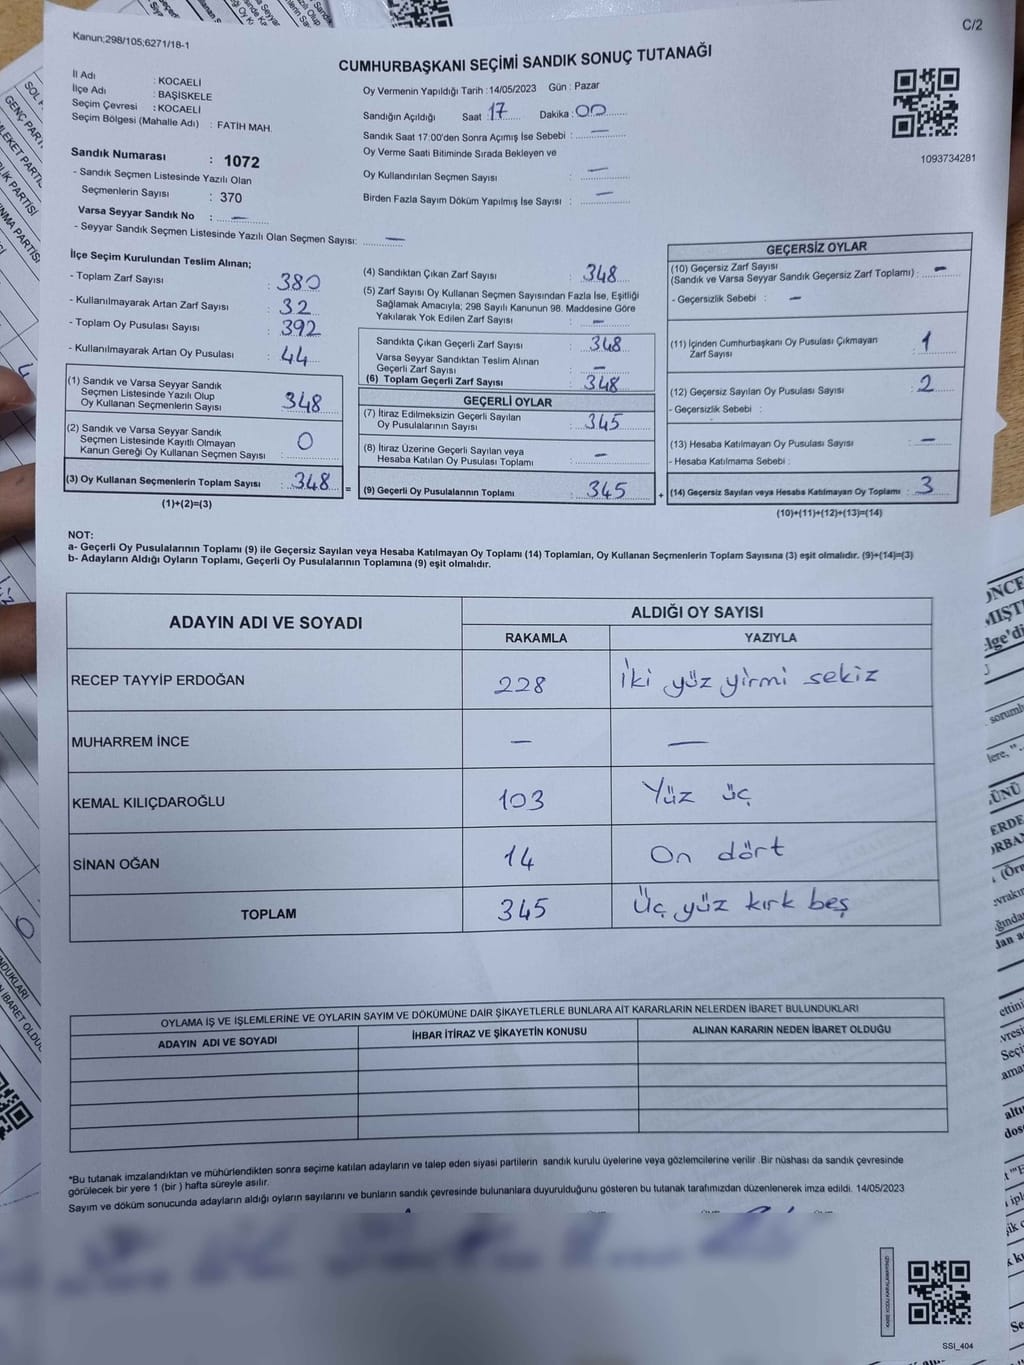 C/2
Kanun;298/105;6271/18-1
CUMHURBAŞKANI SEÇİMİ SANDIK SONUÇ TUTANAĞI
İl Adı : KOCAELİ
İlçe Adı : BAŞİSKELE
Seçim Çevresi : KOCAELİ
Seçim Bölgesi (Mahalle Adı) : FATİH MAH.
Sandık Numarası : 1072
- Sandık Seçmen Listesinde Yazılı Olan
Seçmenlerin Sayısı : 370
Varsa Seyyar Sandık No : —
- Seyyar Sandık Seçmen Listesinde Yazılı Olan Seçmen Sayısı: —
Oy Vermenin Yapıldığı Tarih : 14/05/2023 Gün : Pazar
Sandığın Açıldığı Saat : 17 Dakika : 00
Sandık Saat 17:00'den Sonra Açımış İse Sebebi : —
Oy Verme Saati Bitiminde Sırada Bekleyen ve
Oy Kullandırılan Seçmen Sayısı : —
Birden Fazla Sayım Döküm Yapılmış İse Sayısı : —
1093734281
İlçe Seçim Kurulundan Teslim Alınan;
- Toplam Zarf Sayısı : 380
- Kullanılmayarak Artan Zarf Sayısı : 32
- Toplam Oy Pusulası Sayısı : 392
- Kullanılmayarak Artan Oy Pusulası : 44
(1) Sandık ve Varsa Seyyar Sandık
Seçmen Listesinde Yazılı Olup
Oy Kullanan Seçmenlerin Sayısı : 348
(2) Sandık ve Varsa Seyyar Sandık
Seçmen Listesinde Kayıtlı Olmayan
Kanun Gereği Oy Kullanan Seçmen Sayısı : 0
(3) Oy Kullanan Seçmenlerin Toplam Sayısı : 348
(1)+(2)=(3)
(4) Sandıktan Çıkan Zarf Sayısı : 348
(5) Zarf Sayısı Oy Kullanan Seçmen Sayısından Fazla İse, Eşitliği
Sağlamak Amacıyla; 298 Sayılı Kanunun 98. Maddesine Göre
Yakılarak Yok Edilen Zarf Sayısı : —
Sandıkta Çıkan Geçerli Zarf Sayısı : 348
Varsa Seyyar Sandıktan Teslim Alınan
Geçerli Zarf Sayısı : —
(6) Toplam Geçerli Zarf Sayısı : 348
GEÇERLİ OYLAR
(7) İtiraz Edilmeksizin Geçerli Sayılan
Oy Pusulalarının Sayısı : 345
(8) İtiraz Üzerine Geçerli Sayılan veya
Hesaba Katılan Oy Pusulası Toplamı : —
= (9) Geçerli Oy Pusulalarının Toplamı : 345
GEÇERSİZ OYLAR
(10) Geçersiz Zarf Sayısı
(Sandık ve Varsa Seyyar Sandık Geçersiz Zarf Toplamı) : —
- Geçersizlik Sebebi : —
(11) İçinden Cumhurbaşkanı Oy Pusulası Çıkmayan
Zarf Sayısı : 1
(12) Geçersiz Sayılan Oy Pusulası Sayısı : 2
- Geçersizlik Sebebi :
(13) Hesaba Katılmayan Oy Pusulası Sayısı : —
- Hesaba Katılmama Sebebi :
+ (14) Geçersiz Sayılan veya Hesaba Katılmayan Oy Toplamı : 3
(10)+(11)+(12)+(13)=(14)
NOT:
a- Geçerli Oy Pusulalarının Toplamı (9) ile Geçersiz Sayılan veya Hesaba Katılmayan Oy Toplamı (14) Toplamları, Oy Kullanan Seçmenlerin Toplam Sayısına (3) eşit olmalıdır. (9)+(14)=(3)
b- Adayların Aldığı Oyların Toplamı, Geçerli Oy Pusulalarının Toplamına (9) eşit olmalıdır.
ADAYIN ADI VE SOYADI ALDIĞI OY SAYISI
RAKAMLA YAZIYLA
RECEP TAYYİP ERDOĞAN 228 İki yüz yirmi sekiz
MUHARREM İNCE — —
KEMAL KILIÇDAROĞLU 103 Yüz üç
SİNAN OĞAN 14 On dört
TOPLAM 345 Üç yüz kırk beş
OYLAMA İŞ VE İŞLEMLERİNE VE OYLARIN SAYIM VE DÖKÜMÜNE DAİR ŞİKAYETLERLE BUNLARA AİT KARARLARIN NELERDEN İBARET BULUNDUKLARI
ADAYIN ADI VE SOYADI İHBAR İTİRAZ VE ŞİKAYETİN KONUSU ALINAN KARARIN NEDEN İBARET OLDUĞU
*Bu tutanak imzalandıktan ve mühürlendikten sonra seçime katılan adayların ve talep eden siyasi partilerin sandık kurulu üyelerine veya gözlemcilerine verilir .Bir nüshası da sandık çevresinde
görülecek bir yere 1 (bir ) hafta süreyle asılır.
Sayım ve döküm sonucunda adayların aldığı oyların sayılarını ve bunların sandık çevresinde bulunanlara duyurulduğunu gösteren bu tutanak tarafımızdan düzenlenerek imza edildi. 14/05/2023
SSI_404